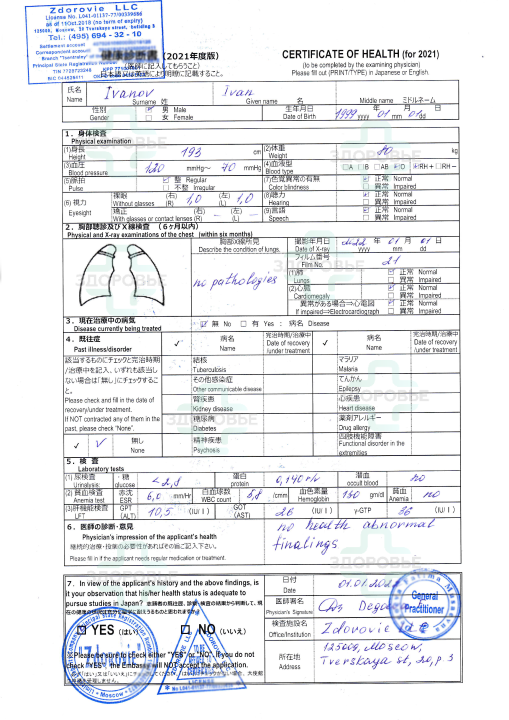 Zdorovie LLC
License No. L041-01137-77/00339586
as of 11Oct.2018 (no term of expiry)
125009, Moscow, 20 Tverskaya street, building 3
Tel.: (495) 694 - 32 - 10
Settlement account
Correspondent account
Branch "Tverskoy"
Principal State Registration Number
（2021年度版）
（医師に記入してもらうこと）
日本語又は英語により明瞭に記載すること。
CERTIFICATE OF HEALTH (for 2021)
(to be completed by the examining physician)
Please fill out (PRINT/TYPE) in Japanese or English.
氏名
Name
Ivanov
Ivan
Surname 姓
Given name 名
Middle name ミドルネーム
性別
Gender
□ 男 Male
□ 女 Female
生年月日
Date of Birth
1999 年 01 月 01 日
yyyy mm dd
1．身体検査
Physical examination
(1)身長
Height
193 cm
(2)体重
Weight
80 kg
(3)血圧
Blood pressure
120 mmHg～ 70 mmHg
(4)血液型
Blood type
□A □B □AB □O □RH＋ □RH－
(5)脈拍
Pulse
□ 整 Regular
□ 不整 Irregular
(7)色覚異常の有無
Color blindness
□ 正常 Normal
□ 異常 Impaired
(6) 視力
Eyesight
裸眼
Without glasses
(右) (R) 1,0
(左) (L) 1,0
(8)聴力
Hearing
□ 正常 Normal
□ 異常 Impaired
矯正
With glasses or contact lenses
(右) (R) —
(左) (L) —
(9)言語
Speech
□ 正常 Normal
□ 異常 Impaired
2．胸部聴診及びX線検査 （6ヶ月以内）
Physical and X-ray examinations of the chest (within six months)
胸部X線所見
Describe the condition of lungs.
no pathologies
撮影年月日
Date of X-ray
2022 年 01 月 01 日
yyyy mm dd
フィルム番号
Film No.
21
(1)肺
Lungs
□ 正常 Normal
□ 異常 Impaired
(2)心臓
Cardiomegaly
□ 正常 Normal
□ 異常 Impaired
異常がある場合⇒心電図
If impaired⇒Electrocardiograph
□ 正常 Normal
□ 異常 Impaired
3．現在治療中の病気
Disease currently being treated
□ 無 No □ 有 Yes： 病名 Disease
4．既往症
Past illness/disorder
✓
病名
Name
完治時期/治療中
Date of recovery
/under treatment
✓
病名
Name
完治時期/治療中
Date of recovery
/under treatment
該当するものにチェックと完治時期
/治療中を記入、いずれも該当し
ない場合は「無し」にチェックするこ
と。
Please check and fill in the date of
recovery/under treatment.
If NOT contracted any of them in the
past, please check "None".
✓ V
無し
None
結核
Tuberculosis
その他感染症
Other communicable disease
腎疾患
Kidney disease
糖尿病
Diabetes
精神疾患
Psychosis
マラリア
Malaria
てんかん
Epilepsy
心疾患
Heart disease
薬剤アレルギー
Drug allergy
四肢機能障害
Functional disorder in the
extremities
5．検 査
Laboratory tests
(1) 尿検査
Urinalysis:
糖
glucose
< 2,8
蛋白
protein
潜血
occult blood
no
(2) 貧血検査
Anemia test
赤沈
ESR
6,0 mm/Hr
白血球数
WBC count
/cmm
血色素量
Hemoglobin
150 gm/dl
貧血
Anemia
no
(3)肝機能検査
LFT
GPT
(ALT)
10,5 (IU/l)
GOT
(AST)
26 (IU/l)
γ-GTP
36 (IU/l)
6．医師の診断・意見
Physician's impression of the applicant's health
継続的治療・投薬の必要性があればその旨ご記入下さい。
Please fill in if the applicant needs regular medication or treatment.
no health abnormal
findings
7. In view of the applicant's history and the above findings, is
it your observation that his/her health status is adequate to
pursue studies in Japan?
□ YES（はい）
□ NO（いいえ）
Please be sure to check either "YES" or "NO". If you do not
check "YES", the Embassy will NOT accept the application.
日付
Date
01.01.202
医師署名
Physician's Signature
検査施設名
Office/Institution
Zdorovie
所在地
Address
125009, Moscow,
Tverskaya st, 20, p. 3
General
Practitioner
Zdorovie
LICENSE
ЗДОРОВЬЕ